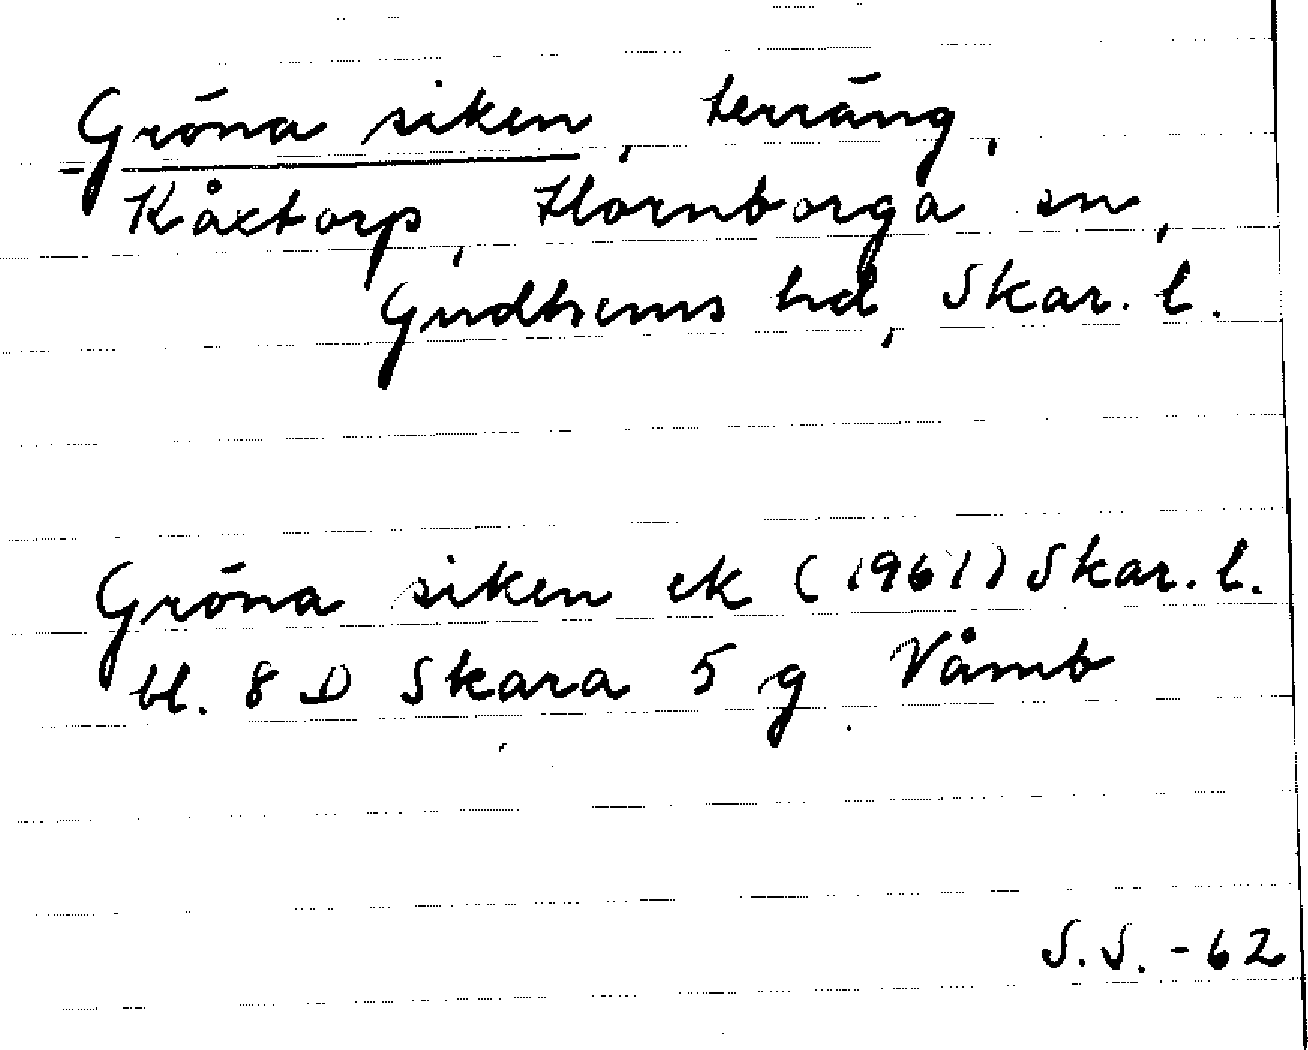 Gröna siken, terräng,
Kåxtorp, Hornborga sn,
Gudhems hd, Skar. l.
Gröna siken ek (1961) Skar. l.
bl. 8 D Skara 5 g Våmb
S.S. -62